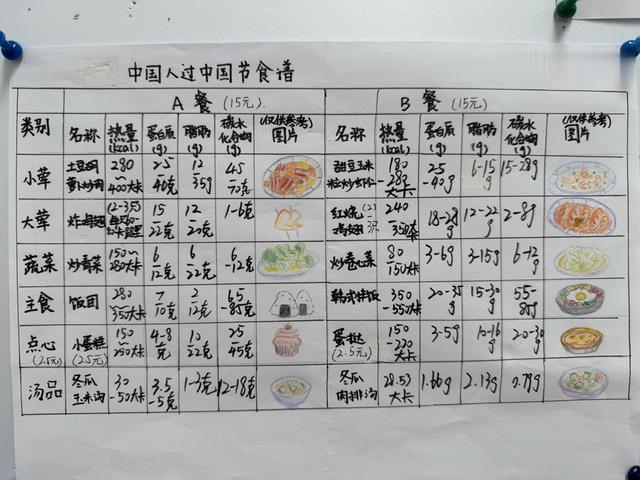 中国人过中国节食谱
A 餐 (15元) B 餐 (15元)
类别 名称 热量(kcal) 蛋白质(g) 脂肪(g) 碳水化合物(g) (仅供参考)图片 名称 热量(kcal) 蛋白质(g) 脂肪(g) 碳水化合物(g) (仅供参考)图片
小荤 280-400大卡 25-40克 12-35g 45-70克 甜豆玉米粒炒虾仁 180-280大卡 25-40g 6-15g 15-28g
大荤 炸鸡翅 15-22克 12-20克 1-6克 红烧鸡翅 240-350大卡 18-28g 12-22g 2-8g
蔬菜 炒青菜 150~280大卡 6-12克 6-22克 6-12克 炒卷心菜 80-150大卡 3-6g 3-15g 6-12g
主食 饭团 280-350大卡 7-10克 2-12克 65-85克 韩式拌饭 350-550大卡 20-35g 15-30g 55-85g
点心(2.5元) 小蛋糕(2.5元) 150~250大卡 4-8克 10-22克 25-45克 蛋挞(2.5元) 150-220大卡 3-5g 10-16g 20-30g
汤品 冬瓜玉米汤 30-50大卡 3.5-5克 1-3克 12-18克 冬瓜肉排汤 28.53大卡 1.66g 2.13g 0.79g